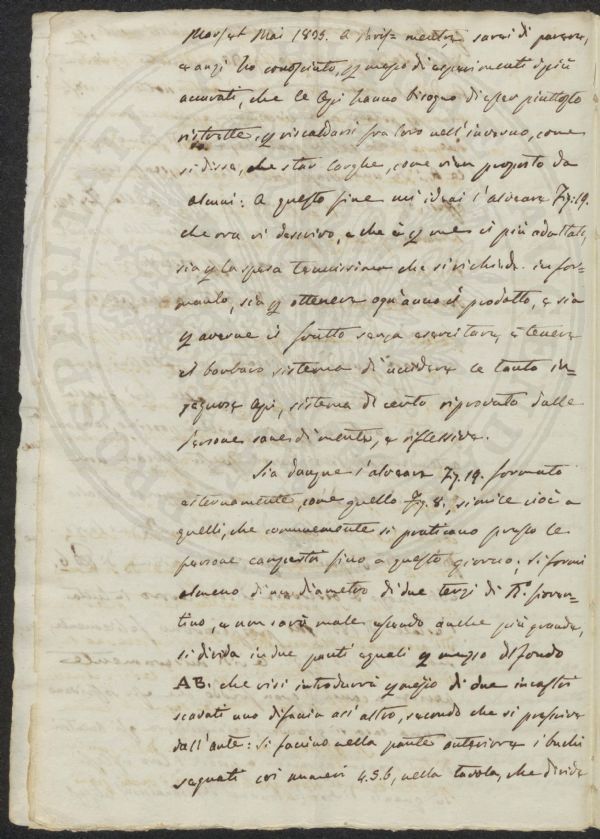 Mai 1835. a mente, sarei di parere,
e anzi ho conosciuto, p mezzo di esperimenti i più
accurati, che le Api hanno bisogno di esser piuttosto
ristrette, p riscaldarsi fra loro nell'inverno, come
si disse, che star larghe, come vien proposto da
alcuni: a questo fine mi ideai l'alveare Fig: 19.
che ora vi descrivo, e che è p me il più adattato,
sia p la spesa tenuissima che si richiede in for-
marlo, sia p ottenere ogn'anno il prodotto, e sia
p averne il frutto senza esercitare, e tenere
il barbaro sistema di uccidere le tanto in-
gegnose Api, sistema di certo riprovato dalle
persone sane di mente, e riflessive.
Sia dunque l'alveare Fig. 19. formato
esternamente, come quello Fig. 8., simile cioè a
quelli, che comunemente si praticano presso le
persone campestri fino a questo giorno; si formi
almeno di un diametro di due terzi di B.o fioren-
tino, e non sarà male essendo anche più grande,
si divida in due parti eguali p mezzo di fondo
AB. che visi introdurrà p mezzo di due incastri
scavati uno di faccia all'altro, secondo che si prescrive
dall'arte: si facino nella parte anteriore i buchi
segnati coi numeri 4.5.6, nella tavola, che divide